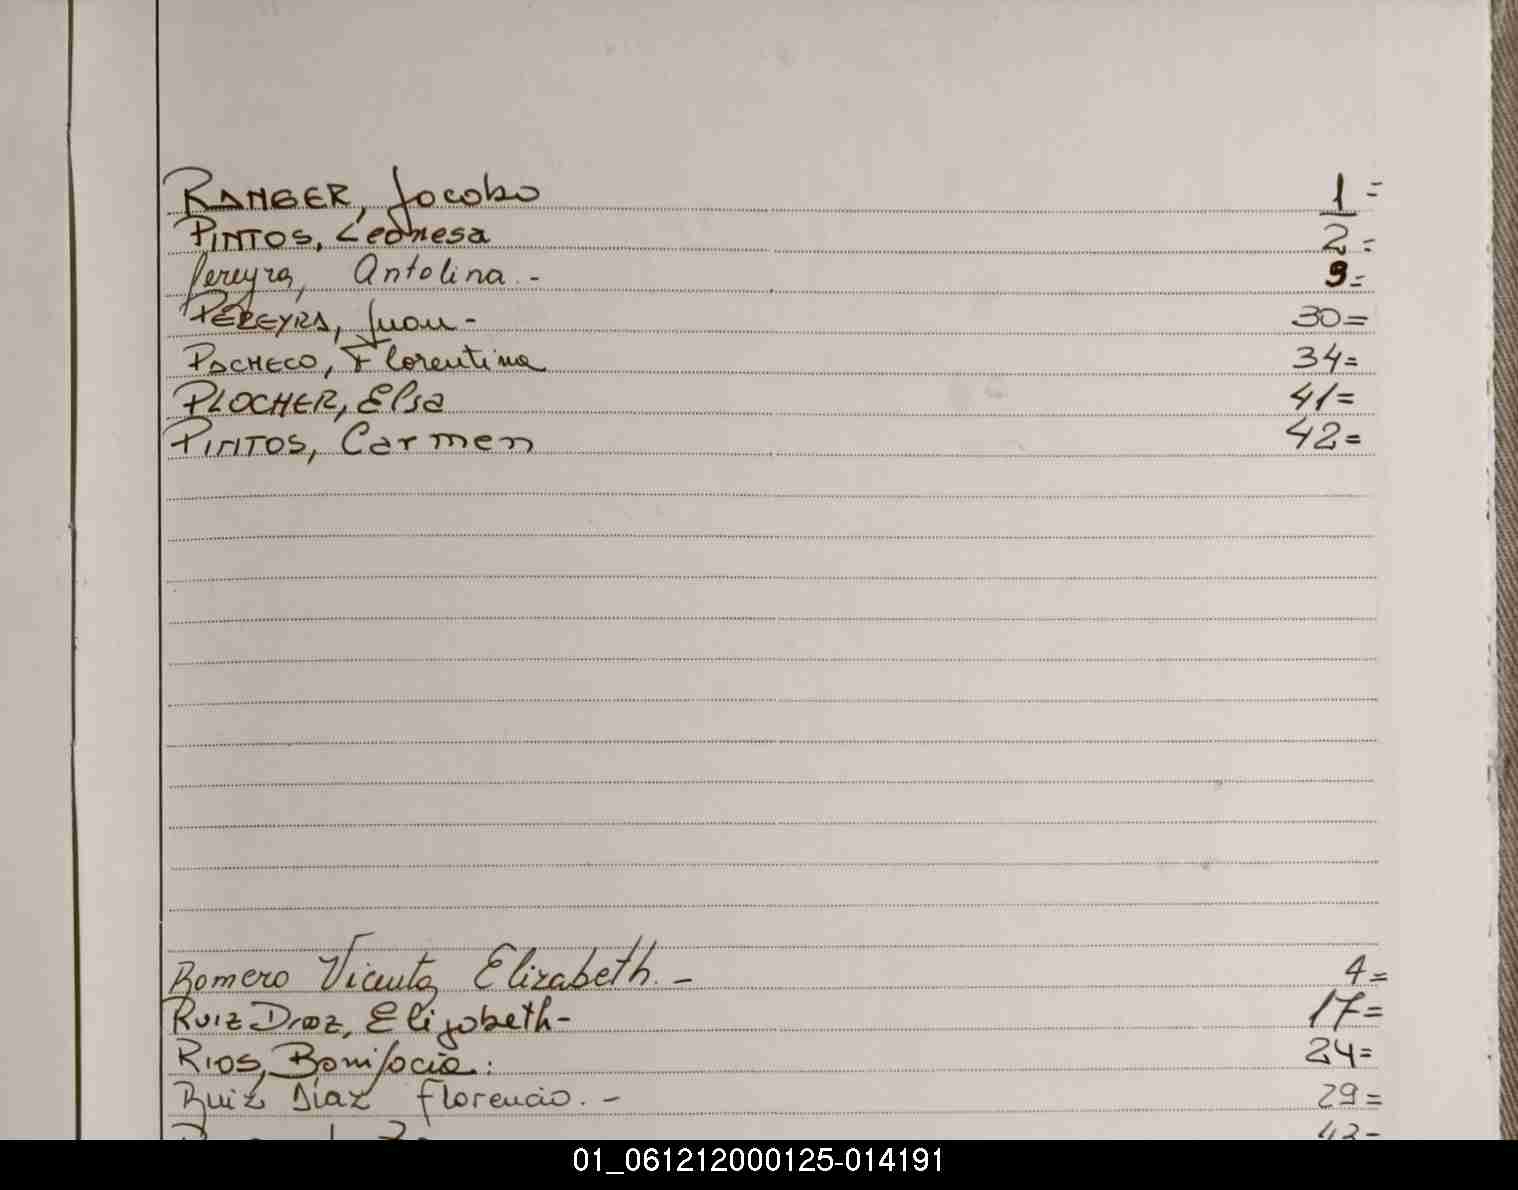 RANGER, Jocobo 1=
PINTOS, Leonesa 2=
Pereyra, Antolina.- 9=
PEREYRA, Juan- 30=
PACHECO, Florentina 34=
PLOCHER, Elsa 41=
PINTOS, Carmen 42=
Romero Vicenta, Elizabeth.- 4=
RUIZ DIAZ, Elizabeth- 17=
RIOS, Bonifocia: 24=
Ruiz Diaz Florencio.- 29=
43=
01_061212000125-014191